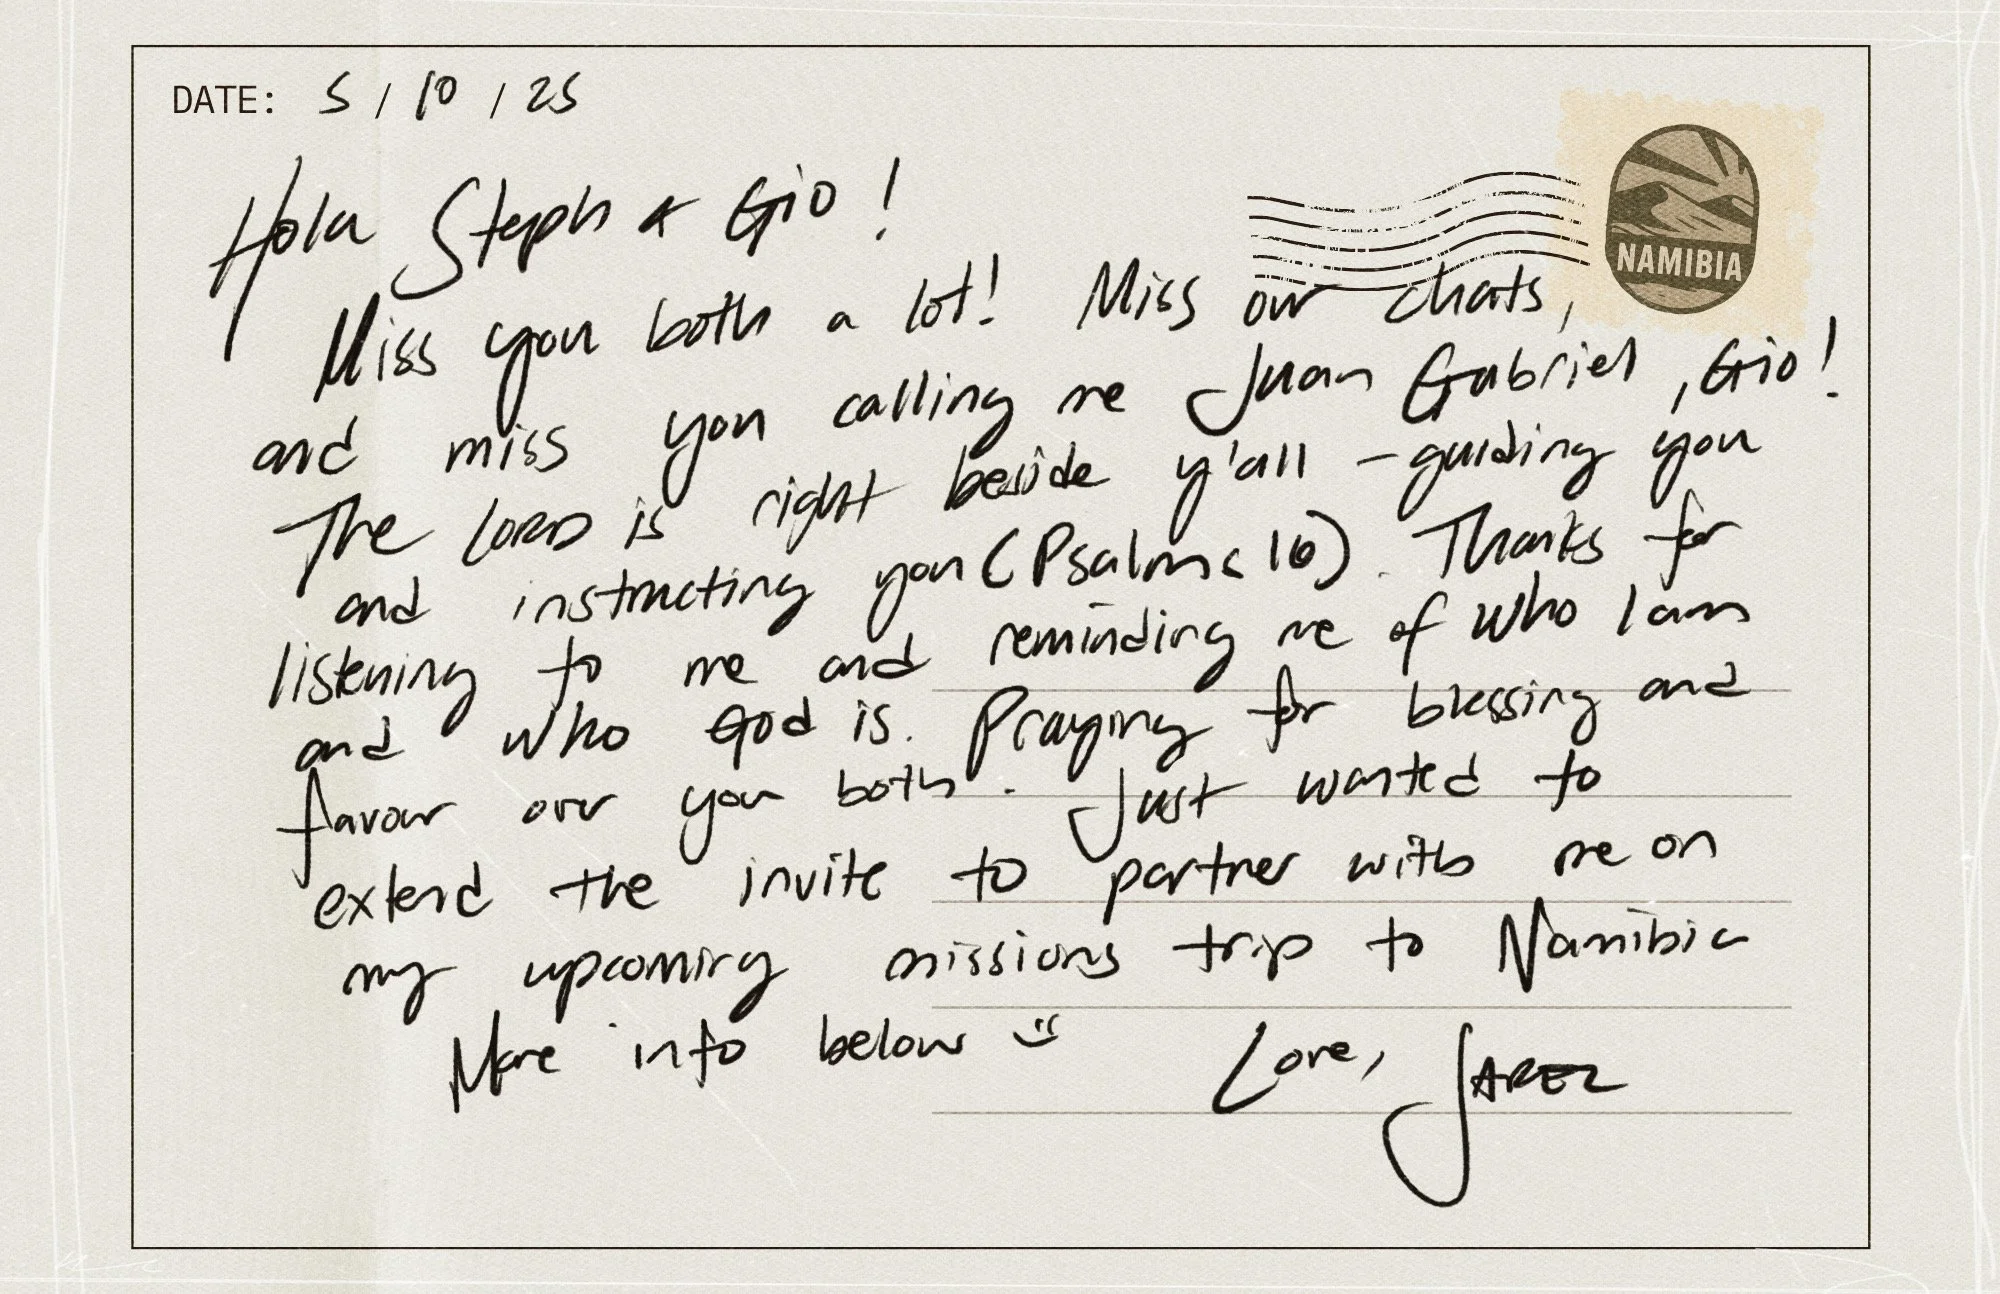 DATE: 5 / 10 / 25
NAMIBIA
Hola Steph & Gio!
Miss you both a lot! Miss our chats,
and miss you calling me Juan Gabriel, Gio!
The LORD is right beside y'all - guiding you
and instructing you (Psalms 16). Thanks for
listening to me and reminding me of who I am
and who God is. Praying for blessing and
favour over you both. Just wanted to
extend the invite to partner with me on
my upcoming missions trip to Namibia
More info below :)
Love, JAREZ